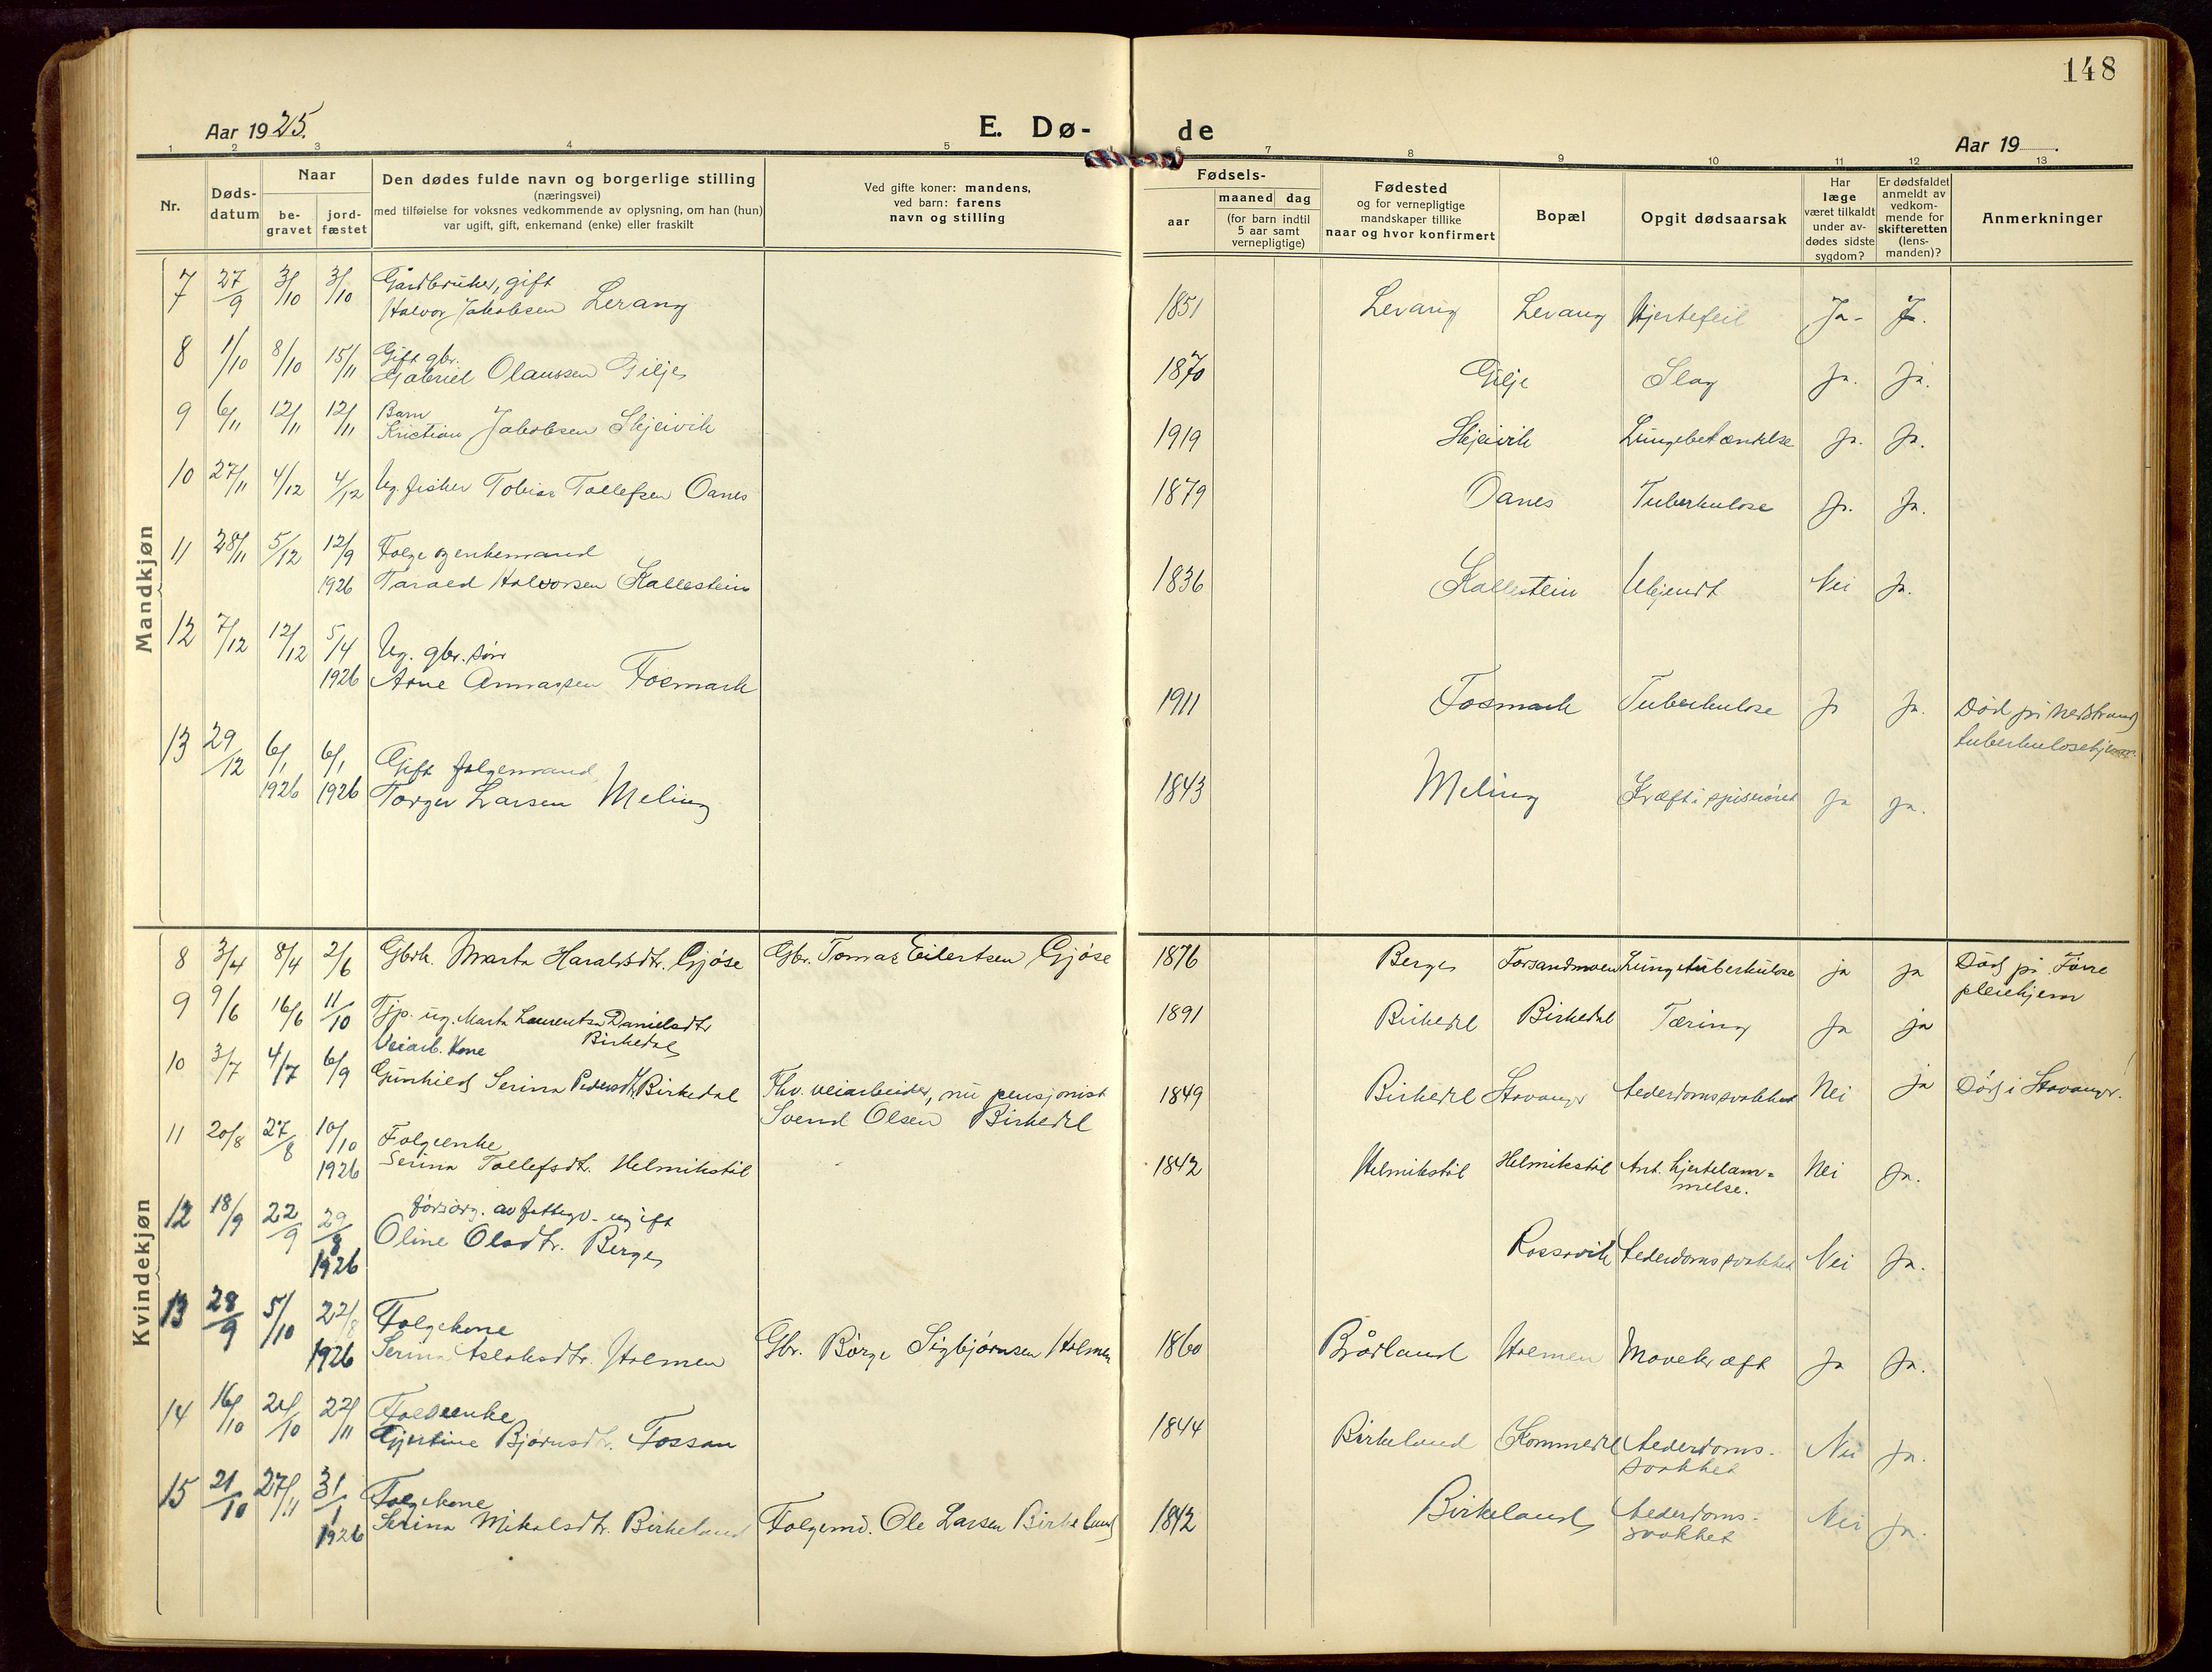 148
Aar 1925.
E. Dø-
de
Aar 19
1 2 3 4 5 6 7 8 9 10 11 12 13
Nr.
Døds-
datum
Naar
be-
gravet
jord-
fæstet
Den dødes fulde navn og borgerlige stilling
(næringsvei)
med tilføielse for voksnes vedkommende av oplysning, om han (hun)
var ugift, gift, enkemand (enke) eller fraskilt
Ved gifte koner: mandens,
ved barn: farens
navn og stilling
Fødsels-
aar
maaned dag
(for barn indtil
5 aar samt
vernepligtige)
Fødested
og for vernepligtige
mandskaper tillike
naar og hvor konfirmert
Bopæl
Opgit dødsaarsak
Har
læge
været tilkaldt
under av-
dødes sidste
sygdom?
Er dødsfaldet
anmeldt av
vedkom-
mende for
skifteretten
(lens-
manden)?
Anmerkninger
Mandkjøn
7 27/9 3/10 3/10 Gårdbruker, gift
Halvor Jakobsen Lerang 1851 Lerang Lerang Hjertefeil Ja. J.
8 1/10 8/10 15/11 Gift gbr.
Gabriel Olaussen Gilje 1870 Gilje Slag Ja. Ja.
9 6/11 12/11 12/11 Barn
Kristian Jakobsen Skjeivik 1919 Skjeivik Lungebetændelse Ja. Ja.
10 27/11 4/12 4/12 Ug. fisker Tobias Tollefsen Oanes 1879 Oanes Tuberkulose Ja. Ja.
11 28/11 5/12 12/9 Folge og enkemand
1926 Tarald Halvorsen Kallestein 1836 Kallestein Ukjendt Nei Ja.
12 7/12 12/12 5/4 Ug. gbr. søn
1926 Arne Fosmark 1911 Fosmark Tuberkulose Ja Ja. Død på Nedstrand
tuberkulosehjem
13 29/12 6/1 6/1 Gift folgemand
1926 1926 Torger Larsen Meling 1843 Meling Kræft i spiserøret Ja Ja.
Kvindekjøn
8 3/4 8/4 2/6 Gbrk. Marta Haraldsdtr. Gjøse Gbr. Tomas Eilertsen Gjøse 1876 Berge Forsandmoen Lungetuberkulose ja ja Død på Førre
pleiehjem
9 9/6 16/6 11/10 Tjp. ug. Marta Laurentsa Danielsdtr
Birkedal 1891 Birkedal Birkedal Tæring Ja ja
10 3/7 4/7 6/9 Veiarb. Kone
Gunhild Serina Pedersdtr. Birkedal Fhv. veiarbeider, nu pensjonist
Svend Olsen Birkedal 1849 Birkedal Stavanger Aederdomssvakhet Nei ja Død i Stavanger.
11 20/8 27/8 10/10 Folgeenke
1926 Serina Tollefsdtr. Helmikstøl 1842 Helmikstøl Helmikstøl Ant. hjertelam-
melse. Nei Ja.
12 18/9 22/9 29/8 forsørg. av fattigv. ugift
1926 Oline Olsdtr. Berge Rossavik Aederdomssvakhet Nei Ja.
13 28/9 5/10 22/8 Folgekone
1926 Serina Aslaksdtr. Holmen Gbr. Børge Sigbjørnsen Holmen 1860 Brådland Holmen Mavekræft Ja Ja.
14 16/10 20/10 22/11 Folgeenke
Gjertine Bjørnsdtr. Fossan 1844 Birkeland Kommedal Aederdoms-
svakhet Nei Ja.
15 21/10 27/11 31/1 Folgekone
1926 Serina Mikalsdtr. Birkeland Folgemd. Ole Larsen Birkeland 1842 Birkeland Aederdoms-
svakhet Nei Ja.